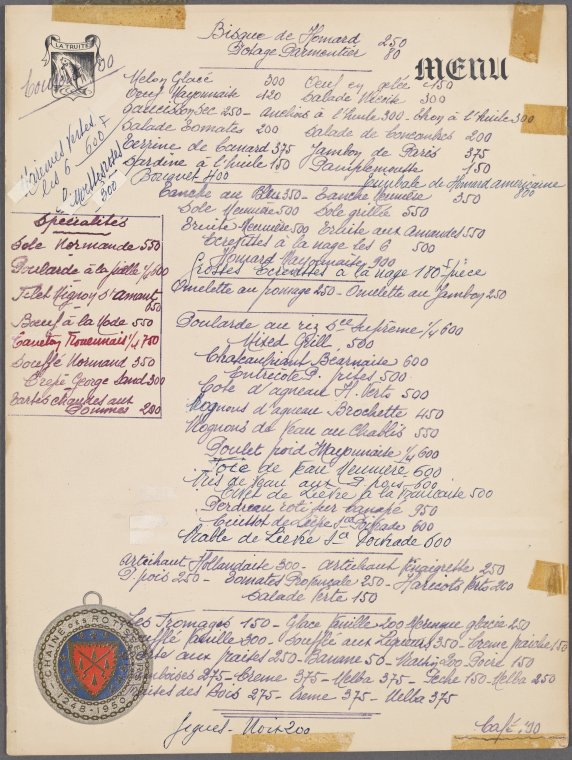 LA TRUITE
Couvert 30
Bisque de Homard 250
Potage Parmentier 80
MENU
Melon Glacé 300 Oeuf en gelée 150
Oeuf Mayonnaise 120 Salade Niçoise 300
Saucisson Sec 250 - Anchois à l'huile 300 - Thon à l'huile 300
Salade Tomates 200 Salade de Concombres 200
Terrine de Canard 375 Jambon de Paris 375
Sardine à l'huile 150 Pamplemousse 150
Bouquet 400 Timbale de Homard américaine 800
Marennes Vertes
les 6 - 600
200
Tanche au Bleu 350 - Tanche Meunière 350
Sole Meunière 500 Sole grillée 550
Truite Meunière 500 Truite aux Amandes 550
Ecrevisses à la nage les 6 500
Homard Mayonnaise 900
Grosses Ecrevisses à la nage 180 F pièce
Omelette au fromage 250 - Omelette au Jambon 250
Spécialités
Sole Normande 550
Poularde à la 1/4 600
Filet Mignon St Amant 650
Boeuf à la Mode 550
Caneton Rouennais 1/4 750
Souflé Normand 350
Crêpe George Sand 300
Tartes chaudes aux
Pommes 200
Poularde au riz Sce Suprême 1/4 600
Mixed Grill 500
Chateaubriant Bearnaise 600
Entrecote P. frites 500
Cote d'agneau H. Verts 500
Rognons d'agneau Brochette 450
Rognons de Veau au Chablis 550
Poulet froid Mayonnaise 1/4 600
Foie de Veau Meunière 600
Ris de Veau aux P. pois 600
Civet de Lièvre à la Française 500
Perdreau roti sur canapé 950
Cuissot de Sce Poivrade 600
Rable de Lièvre Sce Poivrade 600
Artichaut Hollandaise 300 - Artichaut Vinaigrette 250
P. pois 250 - Tomates Provençale 250 - Haricots Verts 200
Salade Verte 150
Les Fromages 150 - Glace Vanille 200 Meringue glacée 250
Soufflé Vanille 300 - Soufflé aux Liqueurs 350 - Creme fraiche 150
aux fraises 250 - Banane 50 - Raisin 200 - Poire 150
Framboises 275 - Creme 375 - Melba 375 - Peche 150 - Melba 250
Fraises des Bois 275 - Creme 375 - Melba 375
CHAINE DES ROTISSEURS
1248-1950
Figues - Noix 200
Café 90